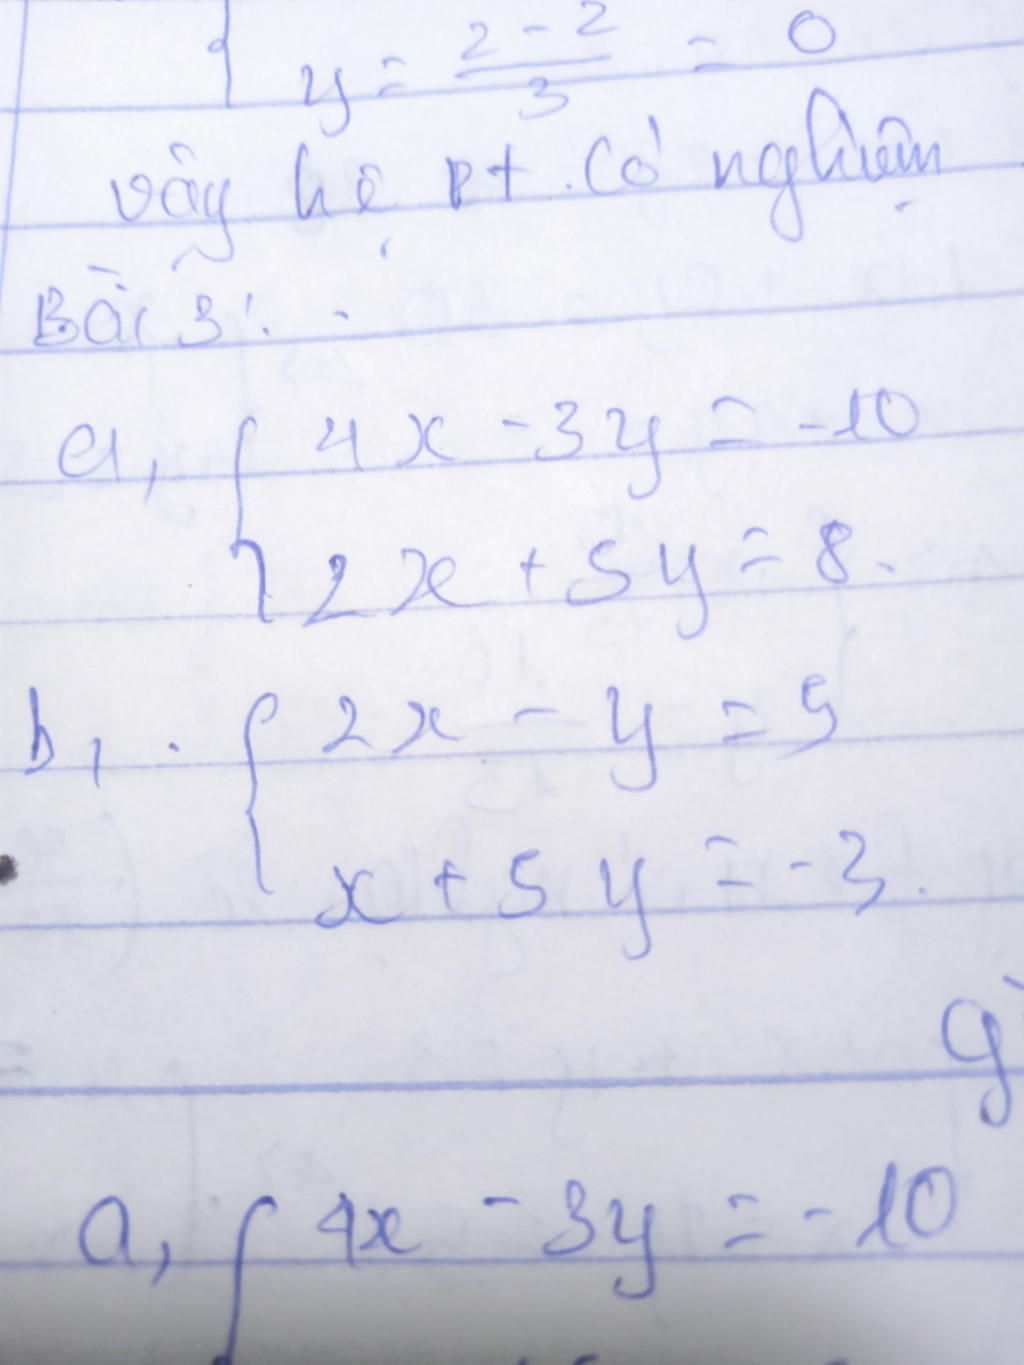 y = 2 - 2 / 3 = 0
vậy hệ pt có nghiệm
Bài 3:
a, { 4x - 3y = -10
2x + 5y = 8.
b, { 2x - y = 5
x + 5y = -3.
a, { 4x - 3y = -10